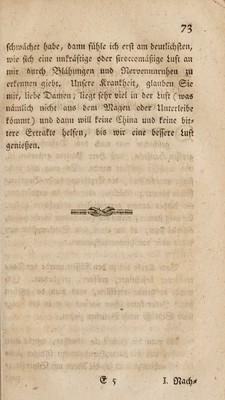 73
schwächet habe, dann fühle ich erst am deutlichsten,
wie sich eine unkräftige oder siroccomäßige Luft an
mir durch Blähungen und Nervenunruhen zu
erkennen giebt. Unsere Krankheit, glauben Sie
mir, liebe Damen; liegt sehr viel in der Luft (was
nämlich nicht aus dem Magen oder Unterleibe
kömmt) und dann will keine China und keine bit-
tere Extrakte helfen, bis wir eine bessere Luft
genießen.
E 5
I. Nach-